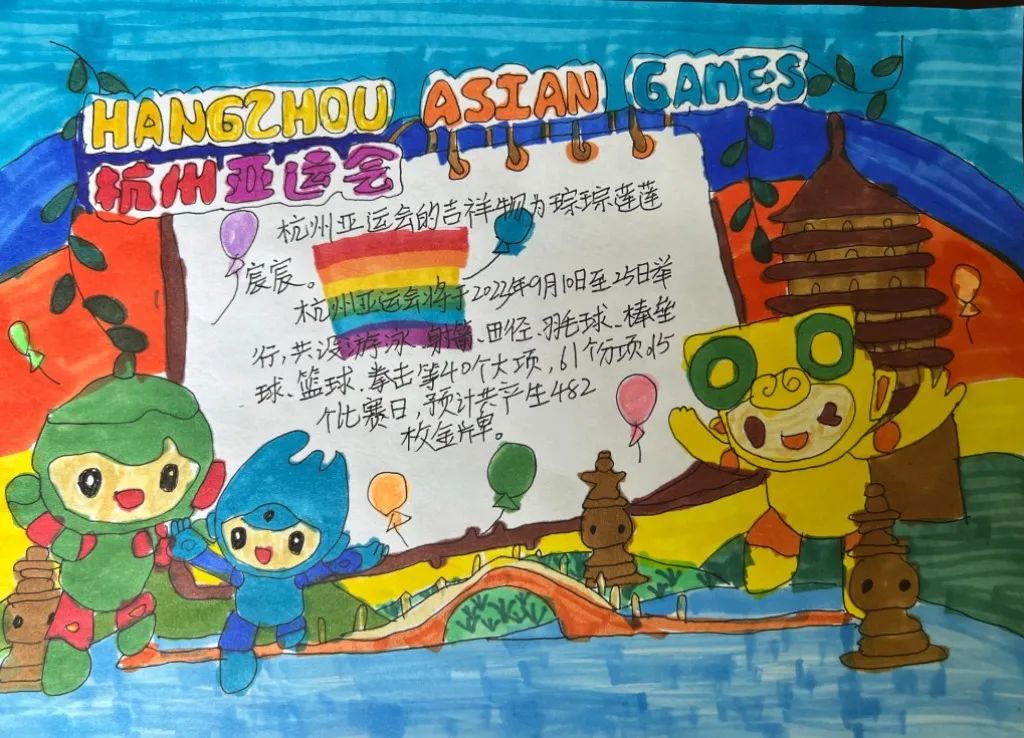 HANGZHOU ASIAN GAMES
杭州亚运会
杭州亚运会的吉祥物为琮琮莲莲
宸宸。
杭州亚运会将于2022年9月10日至25日举
行,共设游泳、射箭、田径、羽毛球、棒垒
球、篮球、拳击等40个大项,61个分项
个比赛日,预计共产生482
枚金牌。